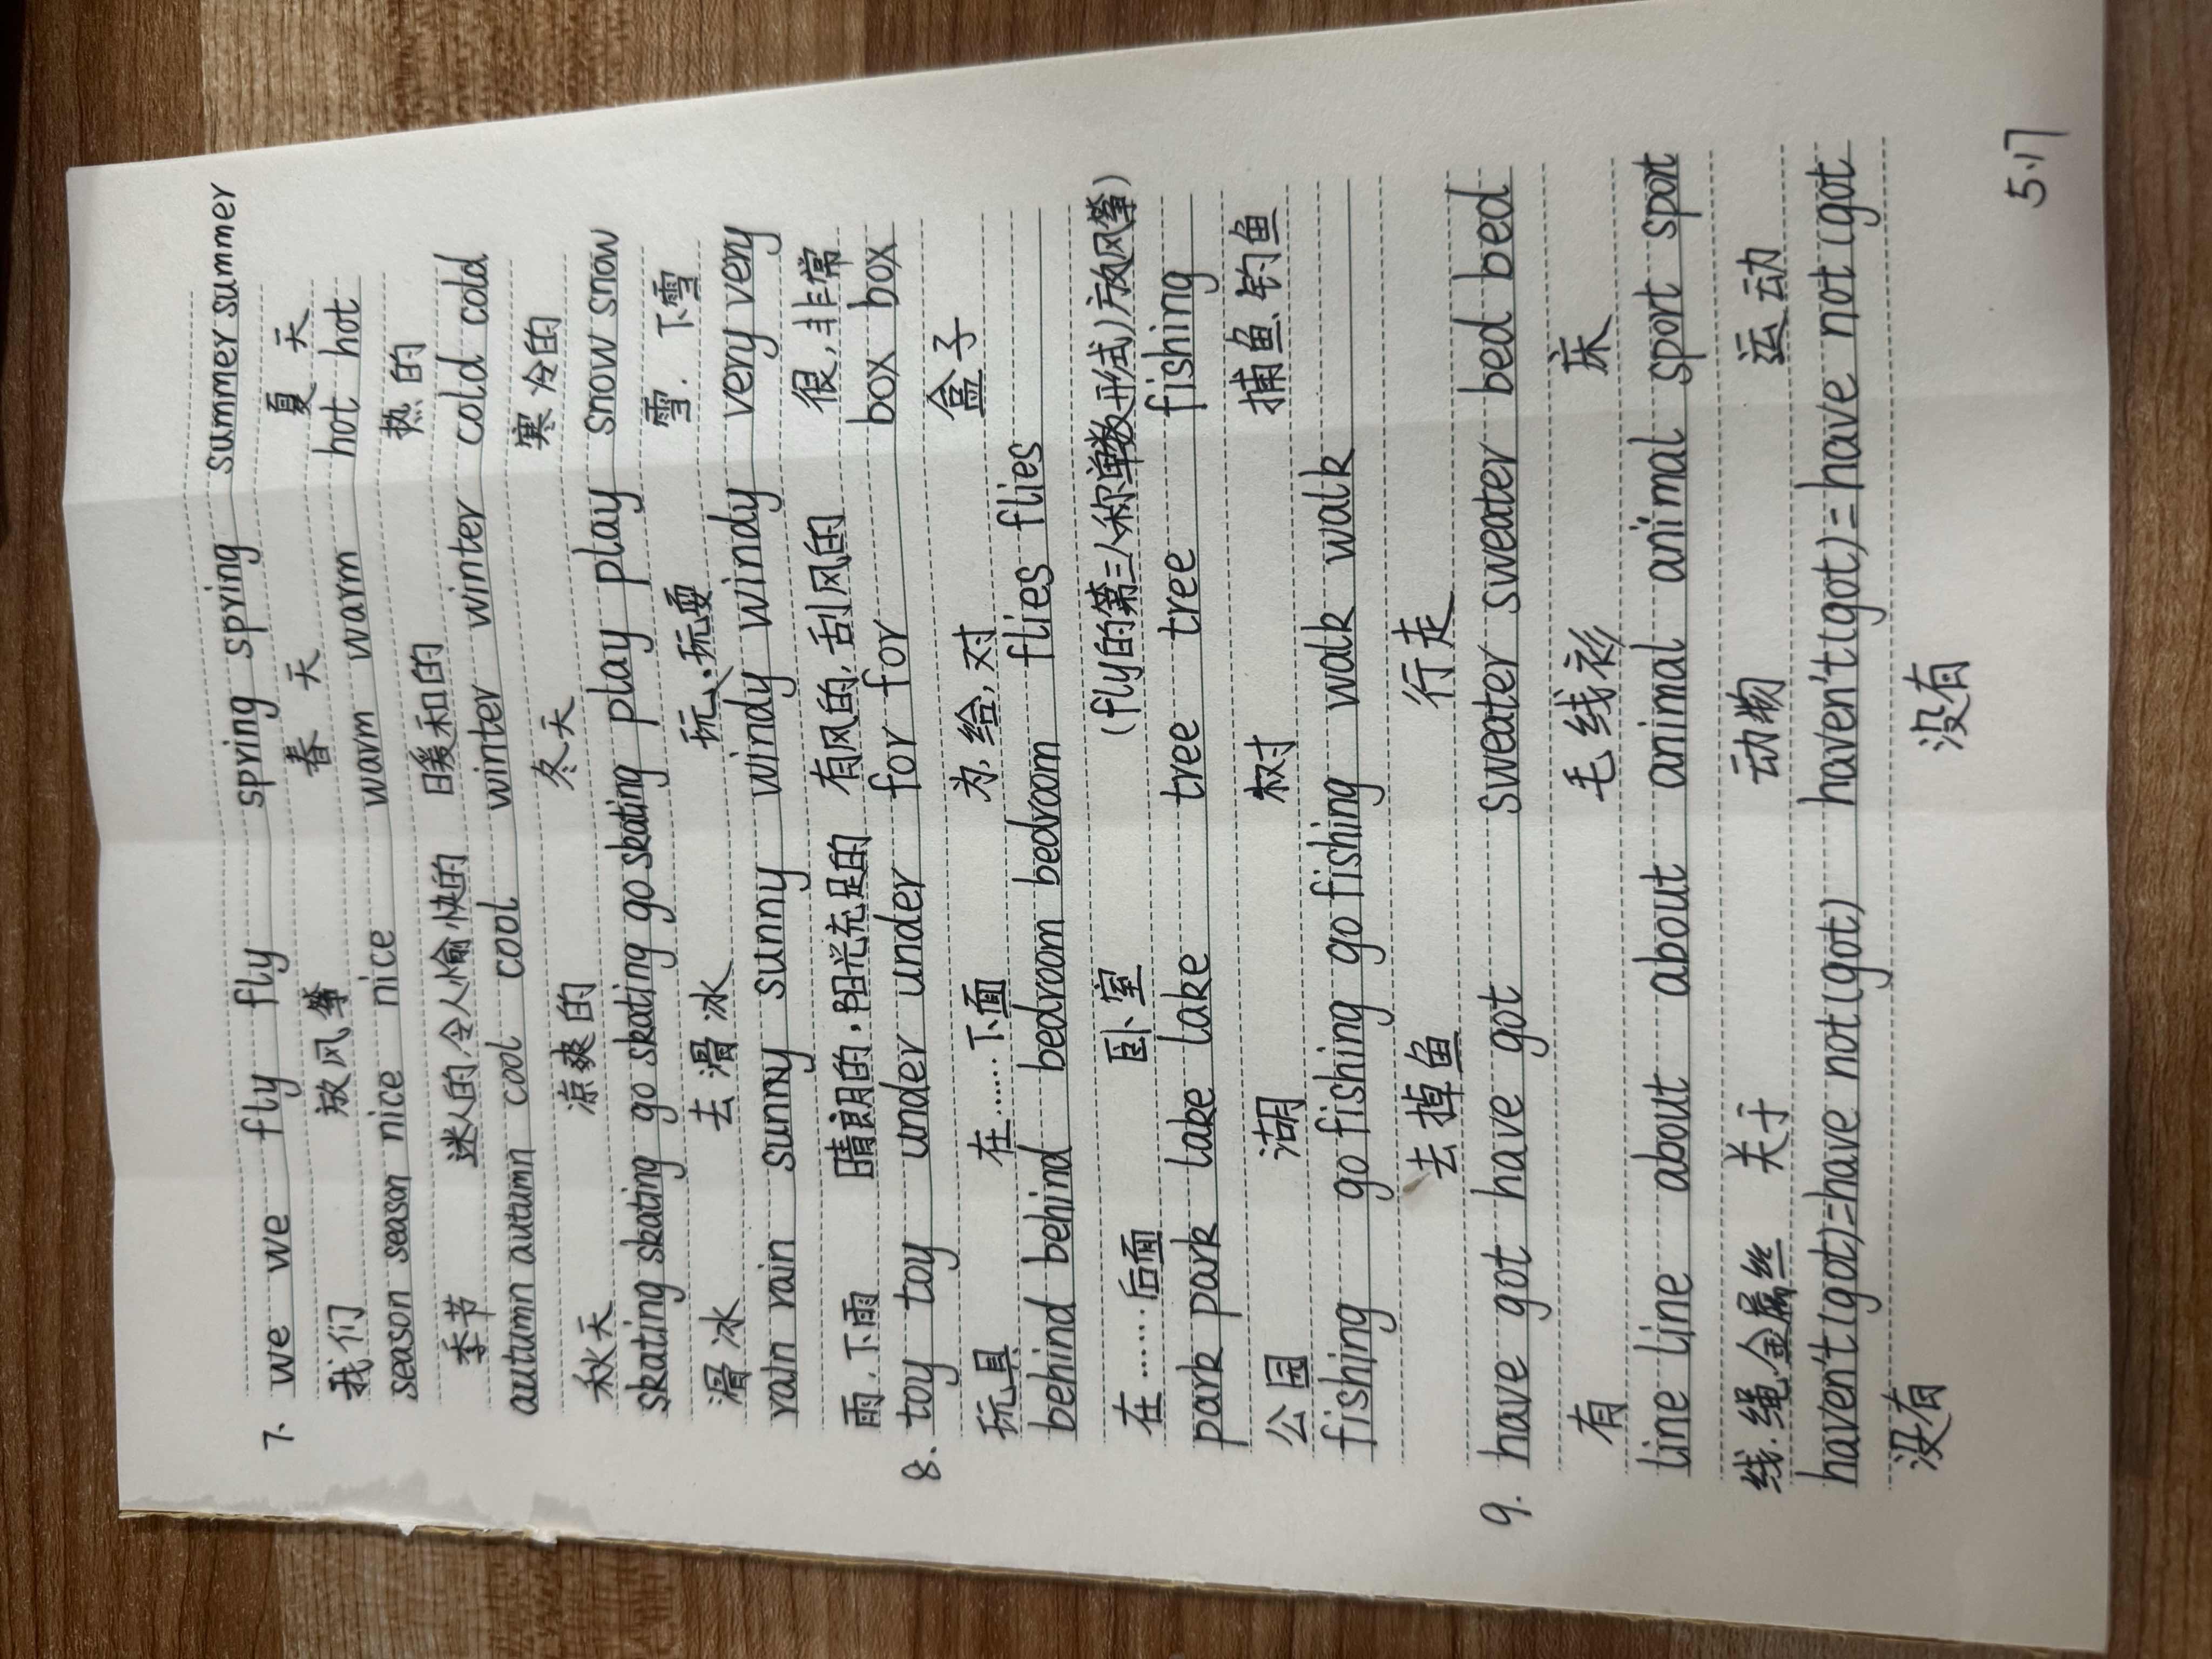 7. we we fly fly spring spring summer summer
我们 放风筝 春天 夏天
season season nice nice warm warm hot hot
季节 迷人的,令人愉快的 暖和的 热的
autumn autumn cool cool winter winter cold cold
秋天 凉爽的 冬天 寒冷的
skating skating go skating go skating play play snow snow
滑冰 去滑冰 玩、玩耍 雪、下雪
rain rain sunny sunny windy windy very very
雨、下雨 晴朗的,阳光充足的 有风的,刮风的 很,非常
8. toy toy under under for for box box
玩具 在……下面 为,给,对 盒子
behind behind bedroom bedroom flies flies
在……后面 卧室 (fly的第三人称单数形式)放风筝
park park lake lake tree tree fishing
公园 湖 树 捕鱼、钓鱼
fishing go fishing go fishing walk walk
去掉鱼 行走
9. have got have got sweater sweater bed bed
有 毛线衫 床
line line about about animal animal sport sport
线、绳、金属丝 关于 动物 运动
haven't(got)=have not(got) haven't(got)=have not(got
没有 没有
5.17